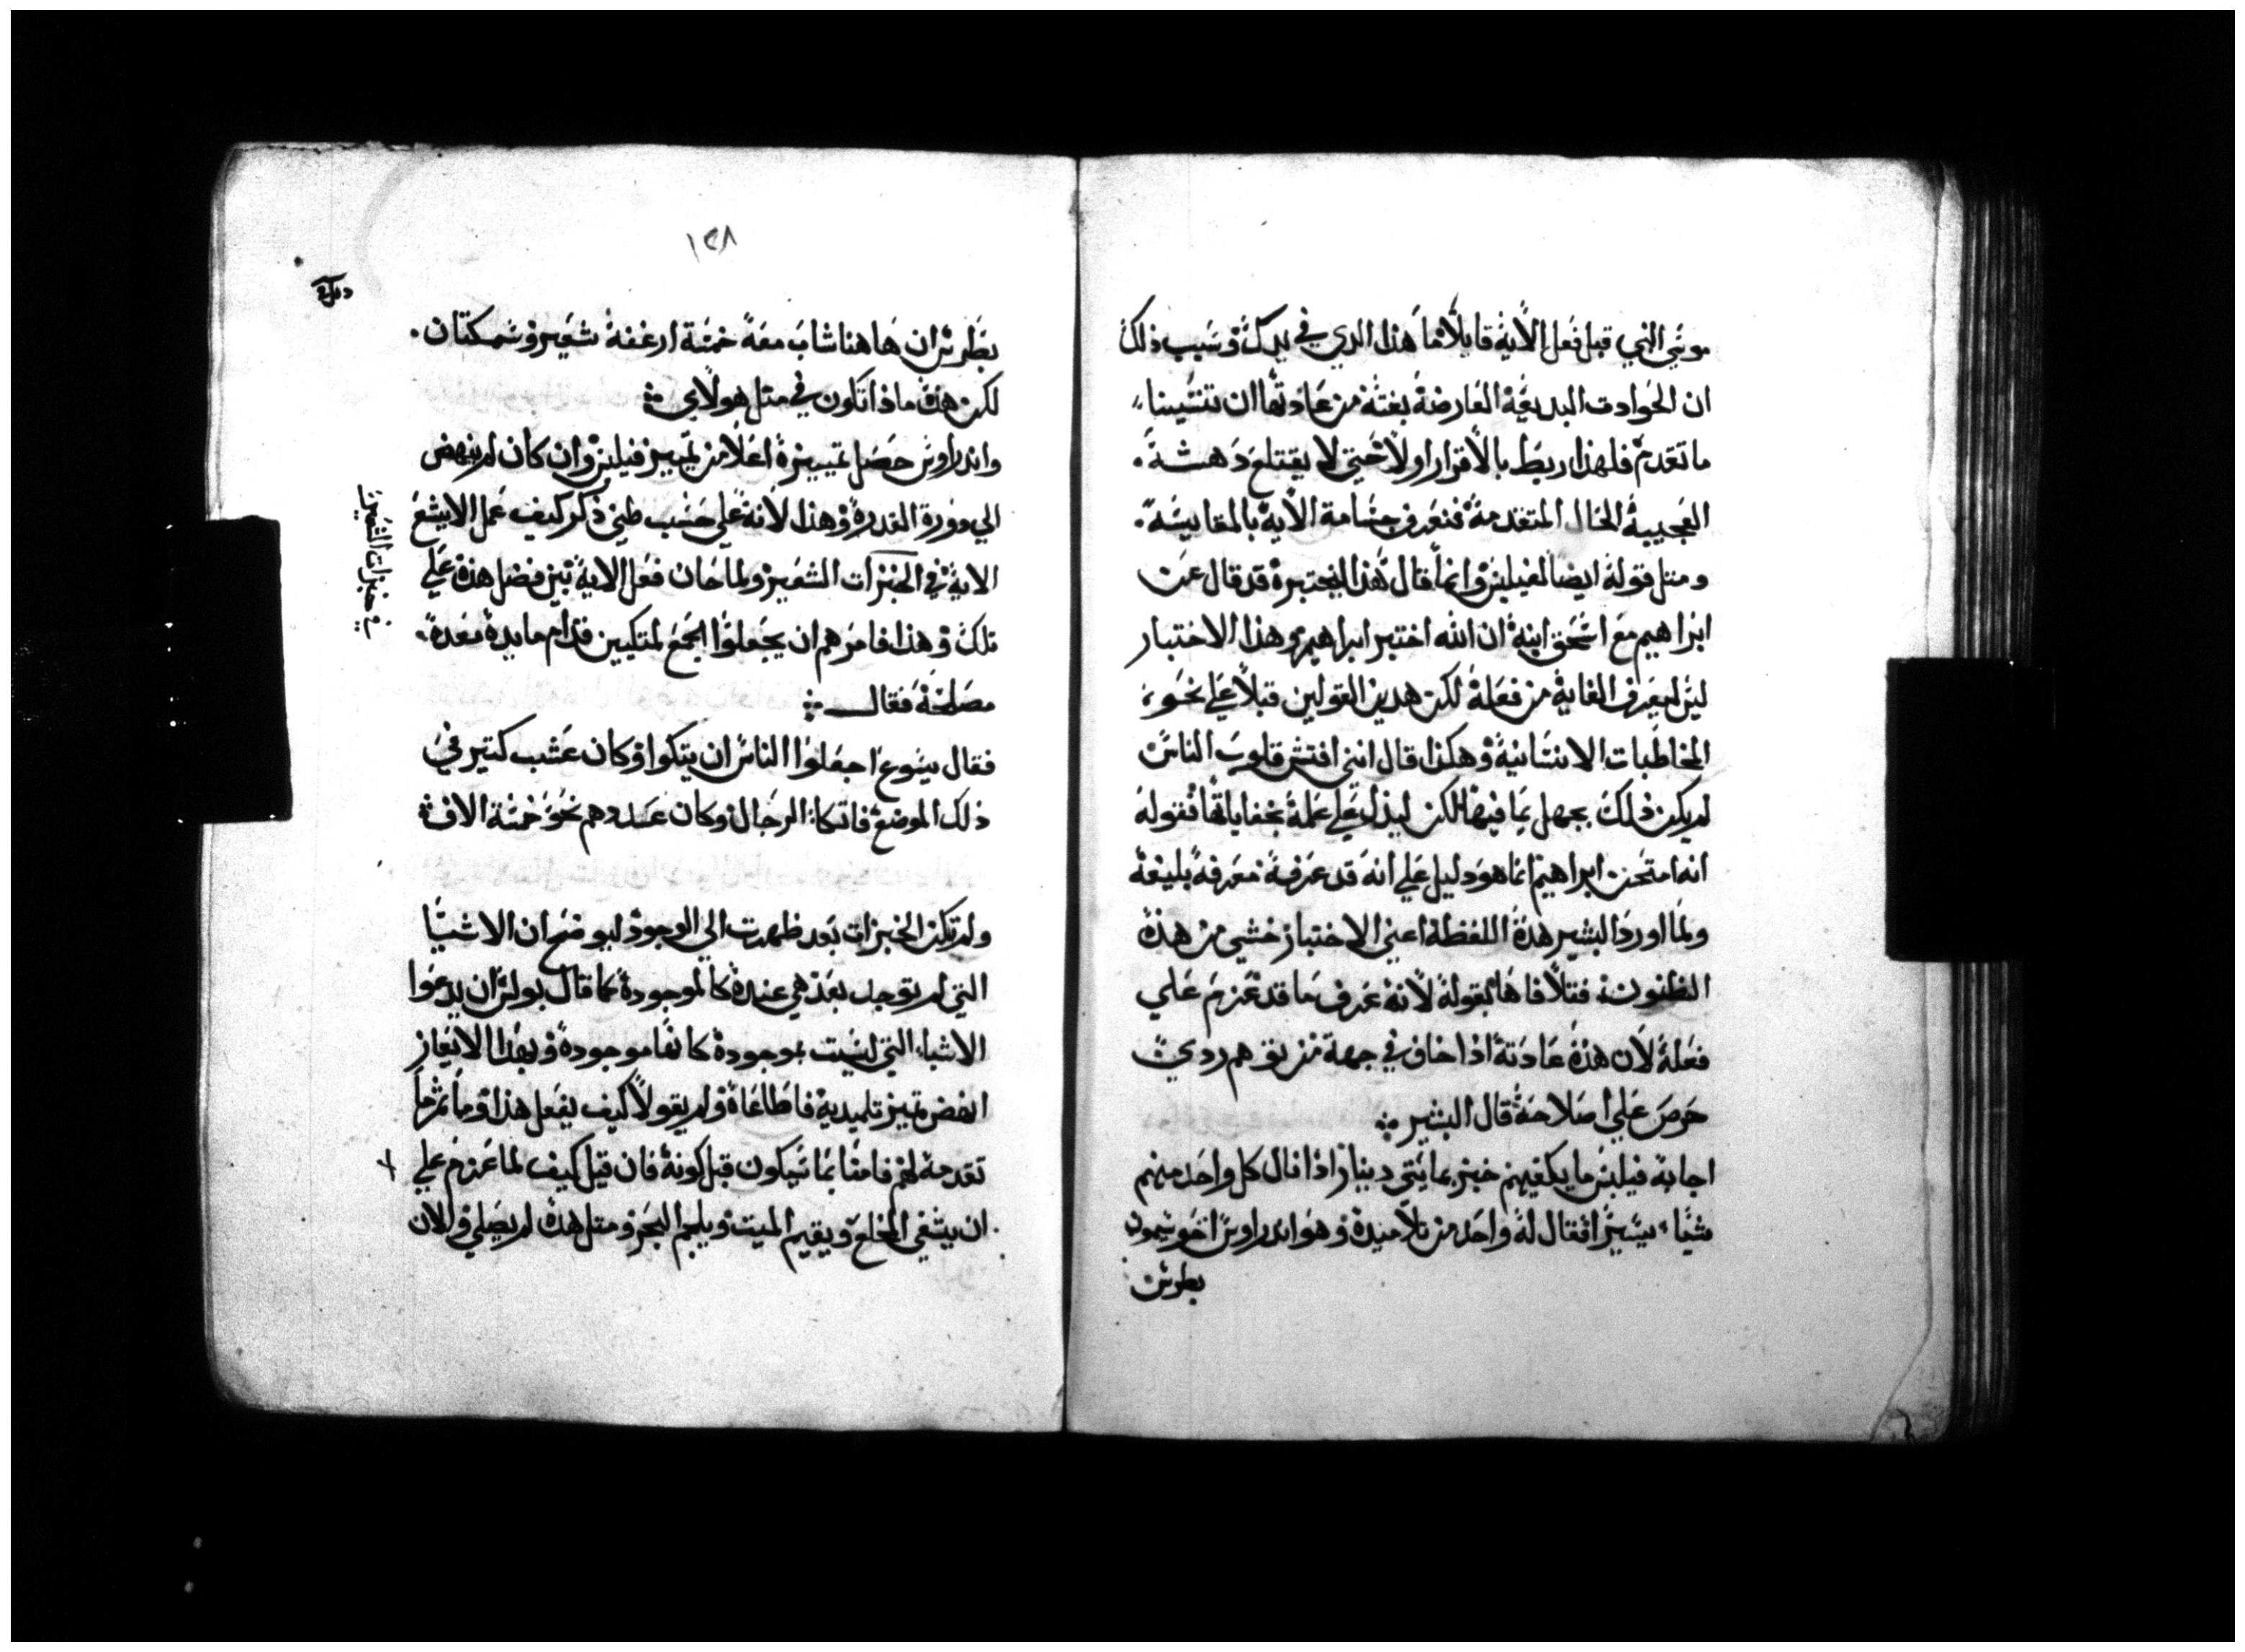 موسي النبي قبل فعل الاية قايلا ما هذا الدي في يدك وسبب ذلك
ان الحوادت البديعة العارضة بغتة من عادتها ان تنسينا
ما تقدم فلهذا ربط بالاقرار اولا حتي لا يقتلع دهشة
العجيبة الحال المتقدمة فنعرف جسامة الاية بالمقايسة
ومتل قوله ايضا لفيلبس وانما قال هذا ليختبره قد قال عن
ابراهيم مع اسحق ابنه ان الله اختبر ابراهيم وهذا الاختبار
ليس ليعرف الغاية من فعله لكن هدين القولين قيلا علي نحو
المخاطبات الانسانية وهكذا قال انني افتش قلوب الناس
لم يكن ذلك بجهل بما فيها لكن ليدل علي عمله بخفاياتها فقوله
انه امتحن ابراهيم انما هو دليل علي انه قد عرفه معرفة بليغة
ولما اورد البشير هذه اللفظة اعني الاختبار خشي من هذه
الظنون فتلافاها بقوله لانه عرف ما قد عزم علي
فعله لان هذه عادته اذا خاف في جهة من توهم ردي
حرص علي اصلاحه قال البشير
اجابه فيلبس ما يكفيهم خبز بمايتي دينار اذا نال كل واحد منهم
شيا يسيرا فقال له واحد من تلاميده وهو اندراوس اخو شمون
بطرس
١٢٨
بطرس ان هاهنا شاب معه خمسة ارغفة شعير وسمكتان
لكن هذه ماذا تكون في متل هولاي
واندراوس حصل تمييزه اعلا من تمييز فيلبس وان كان لم ينهض
الي دورة القدرة وهذا لانه علي حسب ظني ذكر كيف عمل الايشع
الاية في الخبزات الشعير ولما حان فعل الاية بين فضل هذه علي
تلك وهذا فامرهم ان يجعلوا الجمع لمتكيين قدام مايدة معدة
مصلحة فقال
فقال يسوع اجعلوا الناس ان يتكوا وكان عشب كتير في
ذلك الموضع فاتكا الرجال وكان عددهم نحو خمسة الاف
ولم تكن الخبزات بعد ظهرت الي الوجود ليوضح ان الاشيا
التي لم توجد بعد هي عنده كالموجودة كما قال بولس ان يدعوا
الاشيا التي ليست بوجوده كانها موجودة وبهذا الايعاز
انهض تمييز تلميديه فاطاعاه ولم يقولا كيف يفعل هذا وما تم ما
تقدمه لهم فامنا بما سيكون قبل كونه فان قيل كيف لما عزم علي
ان يشفي المخلع ويقيم الميت ويلجم البحر ومتل هذه لم يصلي والان
في خبزات الشعير